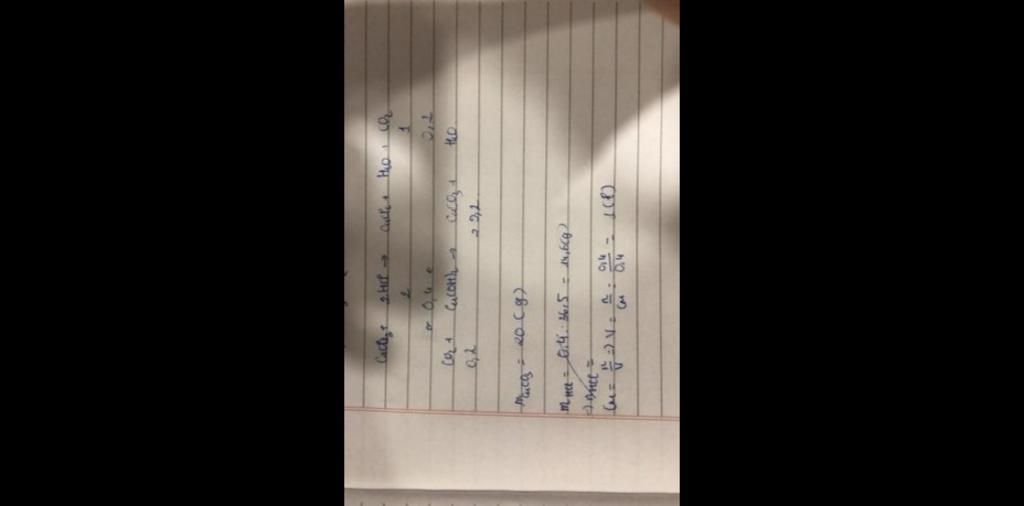 CaCO₃ + 2HCl → CaCl₂ + H₂O + CO₂
2 1
0,4 ← 0,2
CO₂ + Ca(OH)₂ → CaCO₃ + H₂O
0,2 → 0,2
m CaCO₃ = 20 (g)
m HCl = 0,4 . 36,5 = 14,6 (g)
=> HCl =
CM = n/V => V = n/CM = 0,4/0,4 = 1 (l)